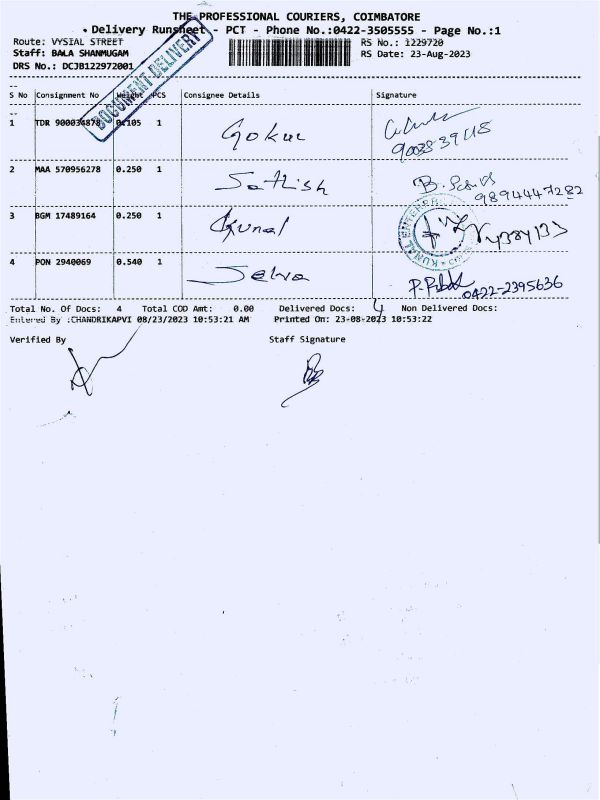 THE PROFESSIONAL COURIERS, COIMBATORE
Delivery Runsheet - PCT - Phone No.:0422-3505555 - Page No.:1
Route: VYSIAL STREET RS No.: 1229720
Staff: BALA SHANMUGAM RS Date: 23-Aug-2023
DRS No.: DCJB122972001
DOCUMENT DELIVERY
S No Consignment No Weight PCS Consignee Details Signature
1 TDR 900034878 0.105 1 Gokul
2 MAA 570956278 0.250 1 Sathish B.
9894447282
3 BGM 17489164 0.250 1 Kunal
KUNAL ENTERPRISES
4 PON 2940069 0.540 1 Selva
0422-2395636
Total No. Of Docs: 4 Total COD Amt: 0.00 Delivered Docs: 4 Non Delivered Docs:
Entered By :CHANDRIKAPVI 08/23/2023 10:53:21 AM Printed On: 23-08-2023 10:53:22
Verified By Staff Signature